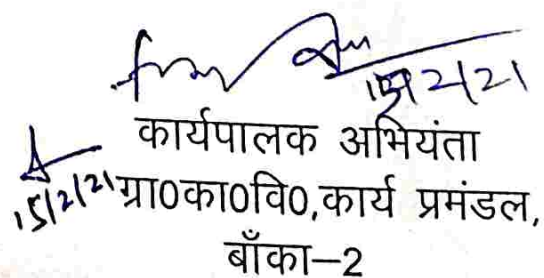 15/2/21
कार्यपालक अभियंता
15/2/21 ग्रा0का0वि0,कार्य प्रमंडल,
बाँका-2